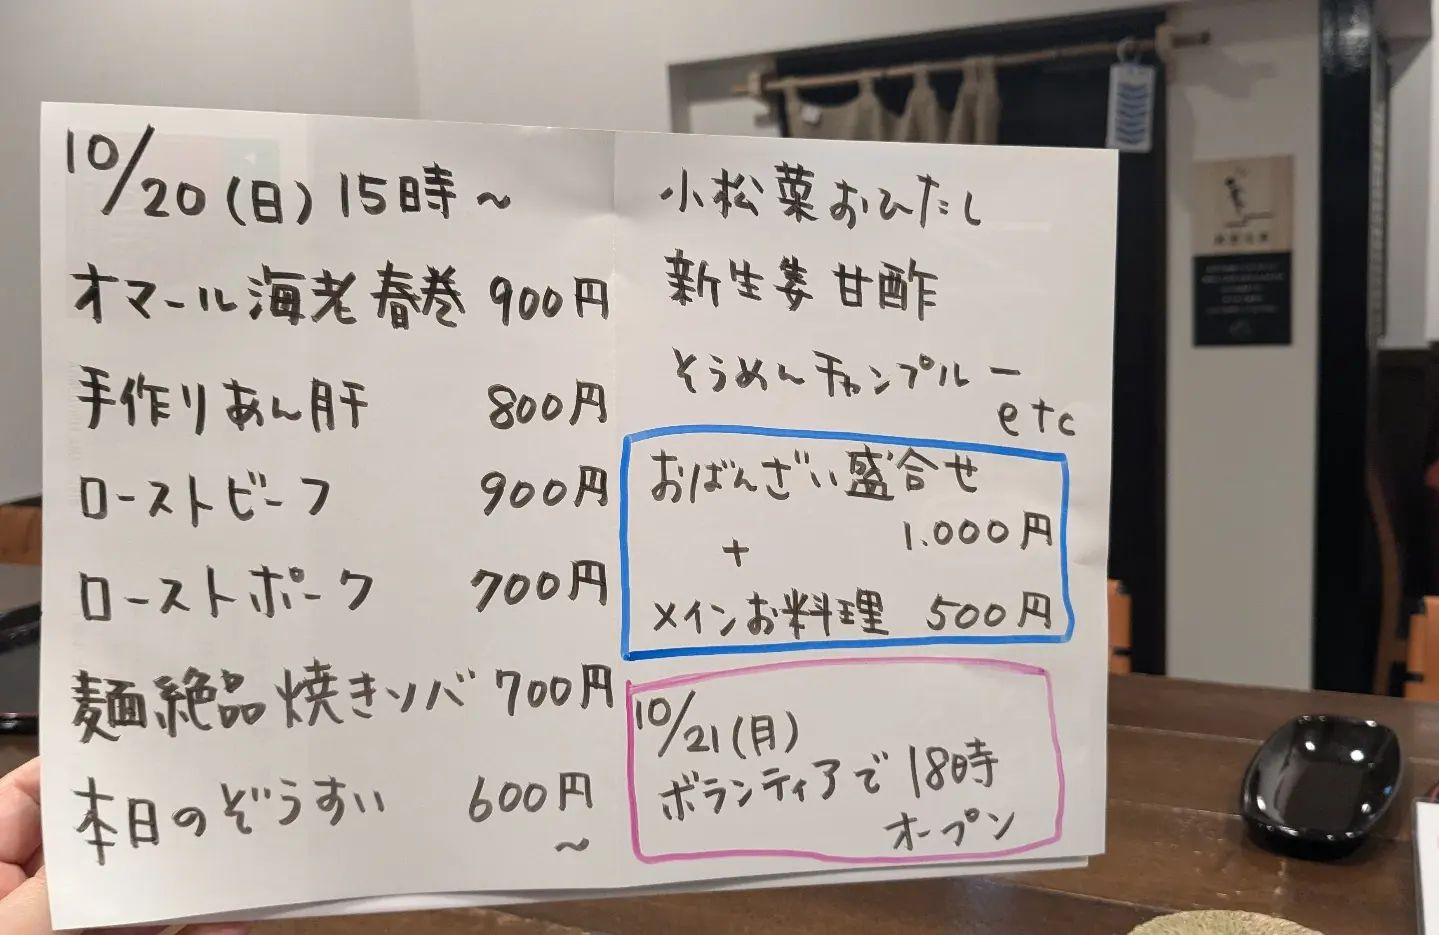 10/20(日)15時~
オマール海老春巻 900円
手作りあん肝 800円
ローストビーフ 900円
ローストポーク 700円
麺絶品焼きソバ 700円
本日のぞうすい 600円~
小松菜おひたし
新生姜甘酢
そうめんチャンプルー
etc
おばんざい盛合せ
1.000円
+
メインお料理 500円
10/21(月)
ボランティアで18時
オープン